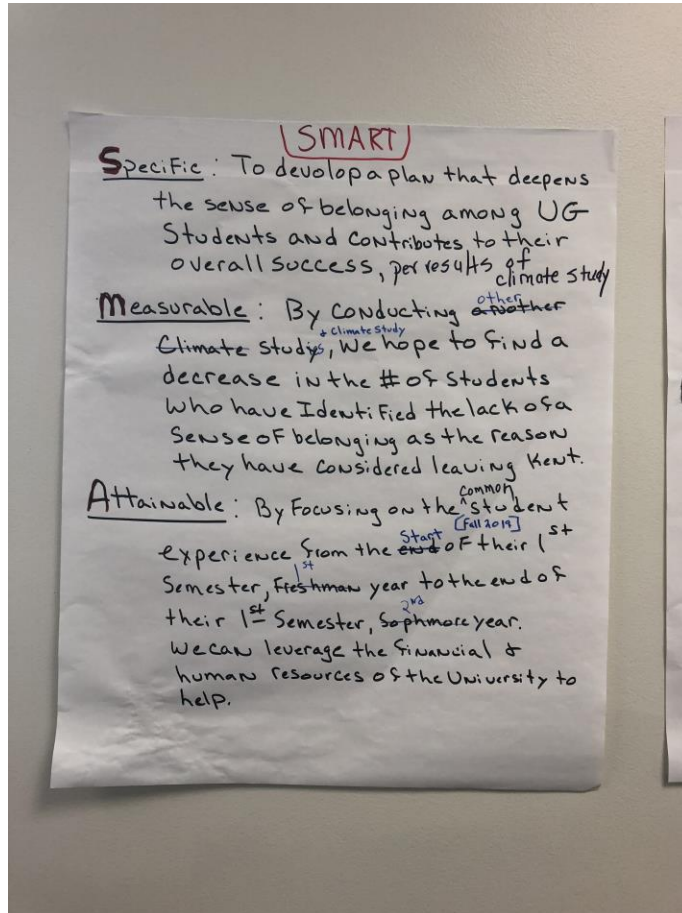 SMART
Specific: To devolop a plan that deepens
the sense of belonging among UG
Students and contributes to their
overall success, per results of
climate study
Measurable: By conducting another other
+ Climate Study
Climate studys, we hope to find a
decrease in the # of Students
who have Identified the lack of a
Sense of belonging as the reason
they have considered leaving Kent.
common
Attainable: By Focusing on the ^ student
Start [Fall 2019]
experience from the end of their 1st
1st
Semester, Freshman year to the end of
2nd
their 1st Semester, Sophmore year.
We can leverage the financial &
human resources of the University to
help.